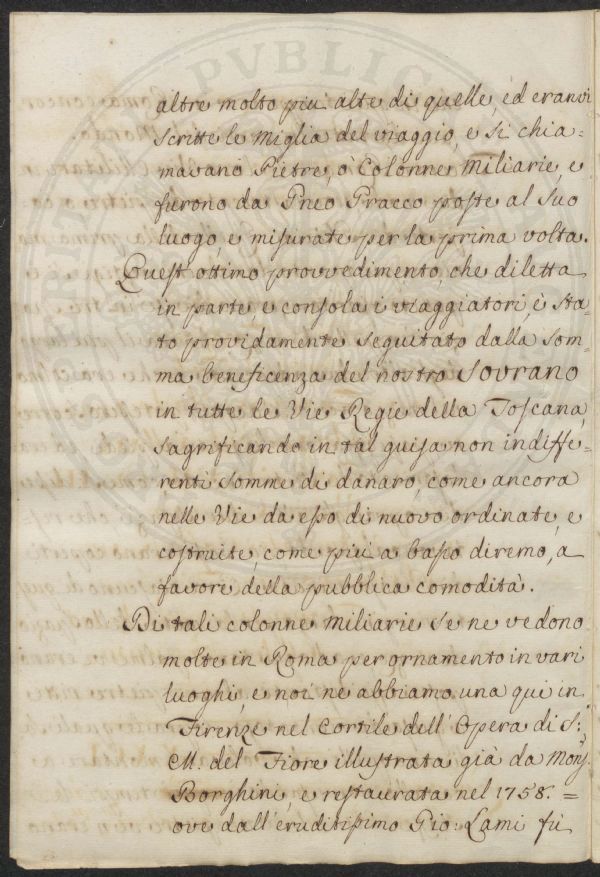 altre molto piu alte di quelle, ed eranvi
scritte le Miglia del viaggio, e si chia=
mavano Pietre, ò Colonne Miliarie, e
furono da Pneo Pracco poste al suo
luogo, e misurate per la prima volta.
Quest'ottimo provvedimento, che diletta
in parte e consola i viaggiatori, è sta=
to providamente seguitato dalla som=
ma beneficenza del nostro Sovrano
in tutte le Vie Regie della Toscana,
sagrificando in tal guisa non indiffe=
renti somme di danaro, come ancora
nelle Vie da esso di nuovo ordinate, e
costruite, come più a basso diremo, a
favore della pubblica comodità.
Di tali colonne miliarie se ne vedono
molte in Roma per ornamento in vari
luoghi, e noi ne abbiamo una qui in
Firenze nel Cortile dell'Opera di S:
M. del Fiore illustrata già da Monsʳ.
Borghini, e restaurata nel 1758. =
ove dall'eruditissimo Gio: Lami fù